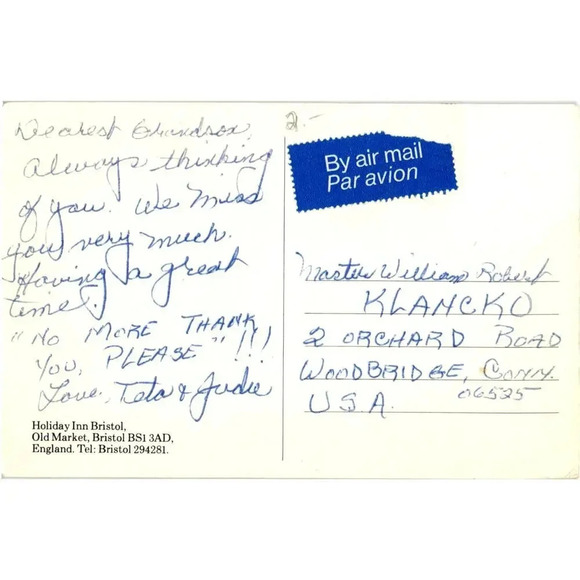 Dearest Grandson,
Always thinking
of you. We miss
you very much.
Having a great
time!
"NO MORE THANK
YOU, PLEASE" !!!
Love, Teta & Judie
Holiday Inn Bristol,
Old Market, Bristol BS1 3AD,
England. Tel: Bristol 294281.
2.-
By air mail
Par avion
Master William Robert
KLANCKO
2 ORCHARD ROAD
WOODBRIDGE, CONN.
06525
USA.